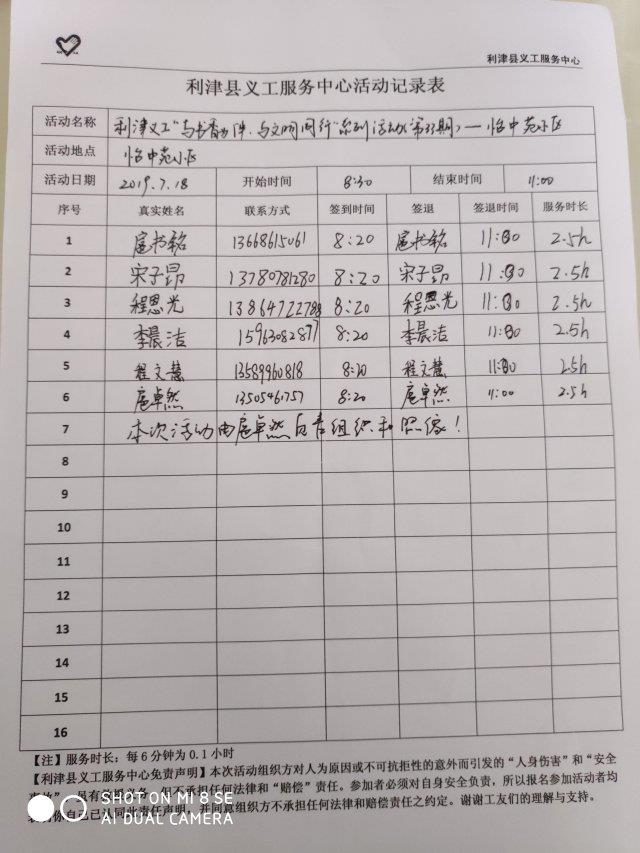 利津县义工服务中心
利津县义工服务中心活动记录表
活动名称 利津义工“与书香为伴·与文明同行”系列活动(第33期)—怡中苑小区
活动地点 怡中苑小区
活动日期 2019.7.18 开始时间 8:30 结束时间 11:00
序号 真实姓名 联系方式 签到时间 签退 签退时间 服务时长
1 扈书铭 13668615061 8:20 扈书铭 11:00 2.5h
2 宋子昂 13780781280 8:20 宋子昂 11:00 2.5h
3 程恩光 13864722788 8:20 程恩光 11:00 2.5h
4 李晨洁 15963082877 8:20 李晨洁 11:00 2.5h
5 程文慧 13589960818 8:20 程文慧 11:00 2.5h
6 扈卓然 13505461757 8:20 扈卓然 11:00 2.5h
7 本次活动由扈卓然负责组织和照像!
8
9
10
11
12
13
14
15
16
【注】服务时长:每6分钟为0.1小时
【利津县义工服务中心免责声明】本次活动组织方对人为原因或不可抗拒性的意外而引发的“人身伤害”和“安全
但不承担任何法律和“赔偿”责任。参加者必须对自身安全负责,所以报名参加活动者均
并同意组织方不承担任何法律和赔偿责任之约定。谢谢工友们的理解与支持。
SHOT ON MI 8 SE
AI DUAL CAMERA